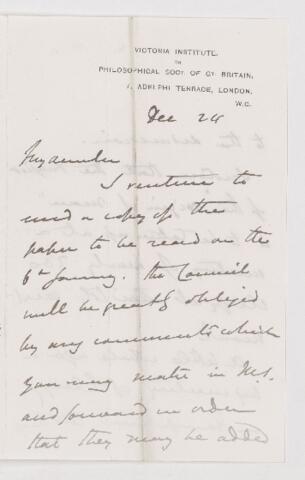 VICTORIA INSTITUTE,
OR
PHILOSOPHICAL SOCY. OF GT. BRITAIN,
7, ADELPHI TERRACE, LONDON,
W.C.
Dec 24
My dear Sir
I venture to
send a copy of the
paper to be read on the
6th January. The Council
will be greatly obliged
by any comments which
you may make in MS.
and forward in order
that they may be added